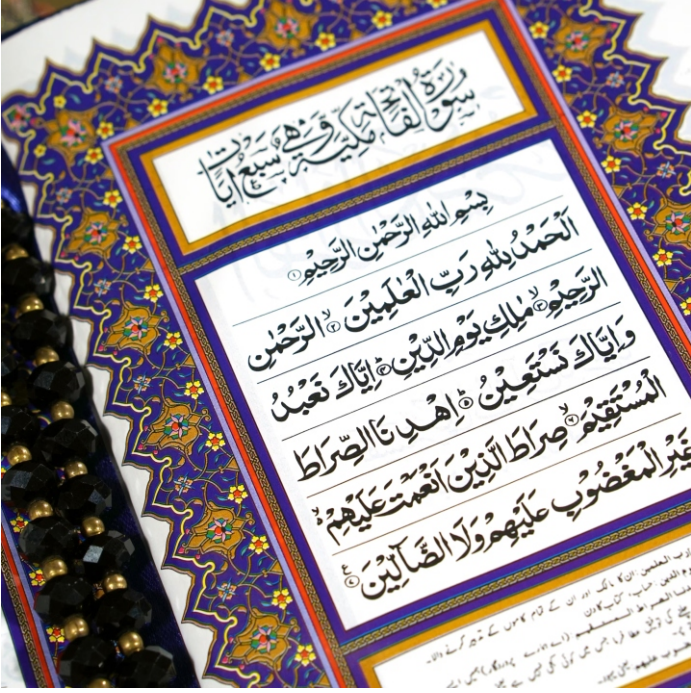 سورة الفاتحة مكية وهى سبع ايات
بِسْمِ اللّٰهِ الرَّحْمٰنِ الرَّحِيْمِ ۝۱
اَلْحَمْدُ لِلّٰهِ رَبِّ الْعٰلَمِيْنَ ۝۲ الرَّحْمٰنِ
الرَّحِيْمِ ۝۳ مٰلِكِ يَوْمِ الدِّيْنِ ۝۴ اِيَّاكَ نَعْبُدُ
وَاِيَّاكَ نَسْتَعِيْنُ ۝۵ اِهْدِنَا الصِّرَاطَ
الْمُسْتَقِيْمَ ۝۶ صِرَاطَ الَّذِيْنَ اَنْعَمْتَ عَلَيْهِمْ
غَيْرِ الْمَغْضُوْبِ عَلَيْهِمْ وَلَا الضَّآلِّيْنَ ۝۷